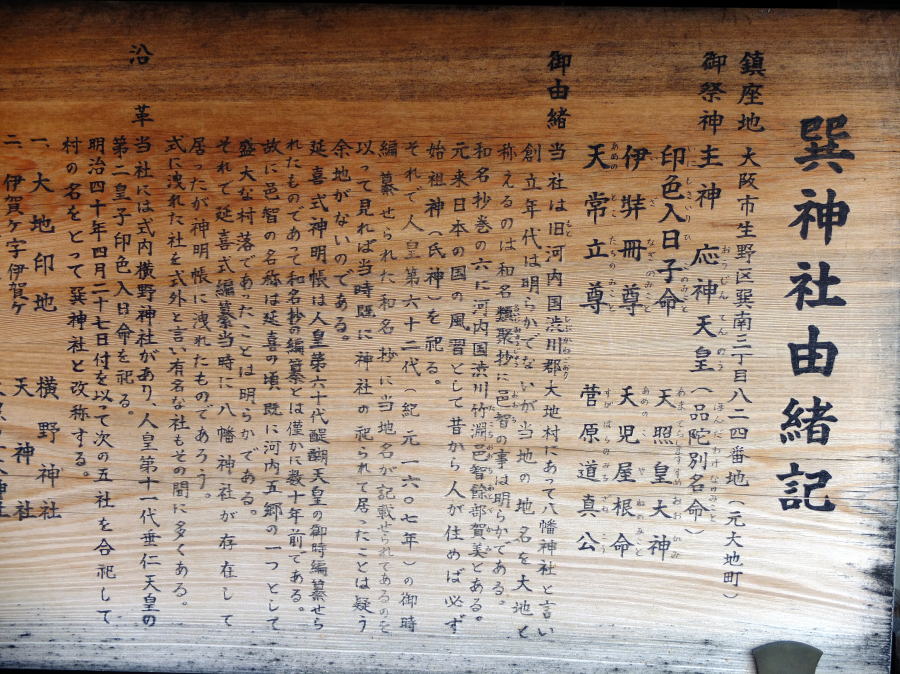 巽神社由緒記
鎮座地 大阪市生野区巽南三丁目八二四番地(元大地町)
御祭神 主神 応神天皇(品陀別名命)
印色入日子命 天照皇大神
伊弉冊尊 天児屋根命
天常立尊 菅原道真公
御由緒 当社は旧河内国渋川郡大地村にあって八幡神社と言い
創立年代は明らかでないが当地の地名を大地と
称えるのは和名類聚抄に邑智の事は明らかである。
和名抄巻の六に河内国渋川竹渕邑智餘部賀美とある。
元来日本の国の風習として昔から人が住めば必ず
始祖神(氏神)を祀る。
それで人皇第六十二代(紀元一六〇七年)の御時
編纂せられた和名抄に当地名が記載せられてあるのを
以って見れば当時既に神社の祀られて居ったことは疑う
余地がないのである。
延喜式神明帳は人皇第六十代醍醐天皇の御時編纂せら
れたものであって和名抄の編纂とは僅かに数十年前である。
故に邑智の名称は延喜の頃既に河内五郷の一つとして
盛大な村落であったことは明らかである。
それで延喜式編纂当時に八幡神社が存在して
居ったが神明帳に洩れたものであろう。
式に洩れた社を式外と言い有名な社もその間に多くある。
沿革 当社には式内横野神社があり、人皇第十一代垂仁天皇の
第二皇子印色入日命を祀る。
明治四十年四月二十七日付を以って次の五社を合祀して
村の名をとって巽神社と改称する。
一、大地印地 横野神社
二、伊賀ヶ字伊賀ヶ 天神社